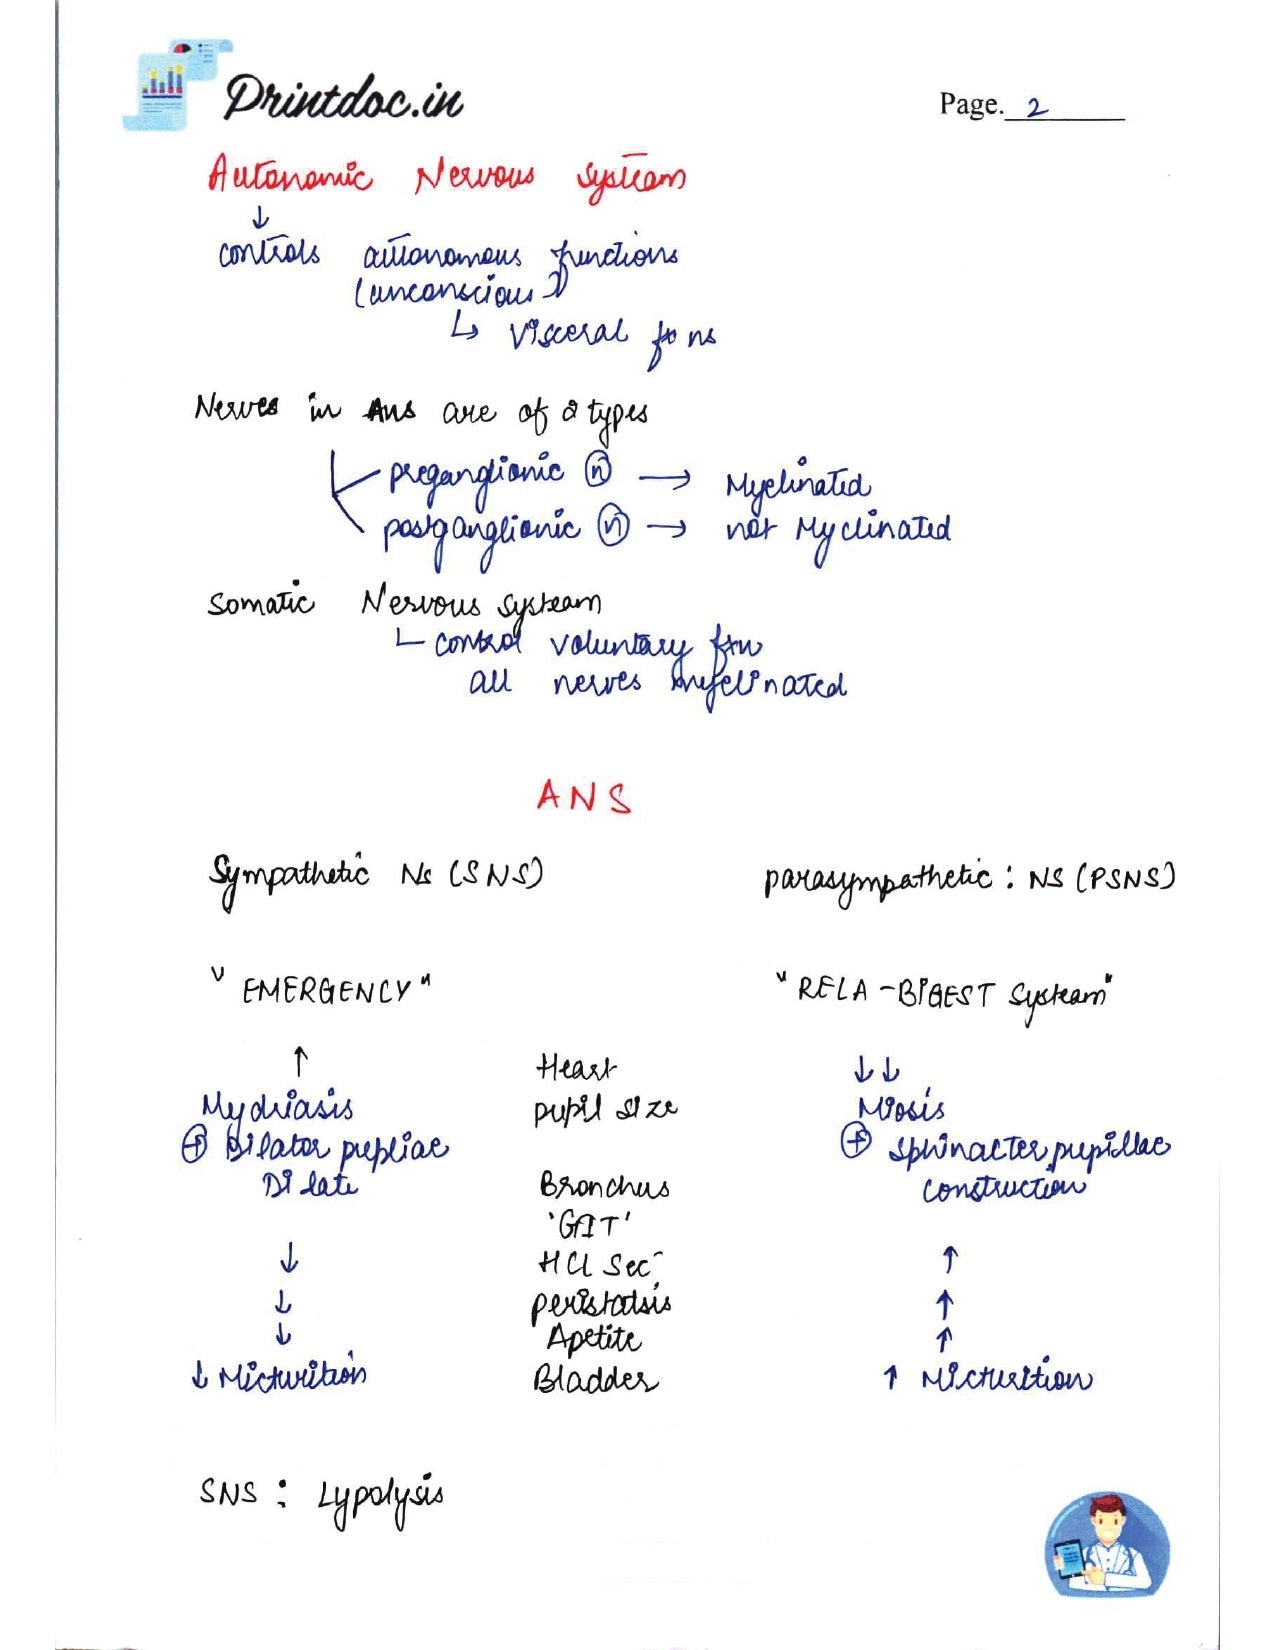 Printdoc.in
Page. 2
Autonomic Nervous System
↓
controls autonomous functions
(unconscious)
↳ Visceral fxns
Nerves in ANS are of 2 types
preganglionic (n) → Myelinated
postganglionic (n) → not Myelinated
Somatic Nervous System
control voluntary fxn
all nerves myelinated
ANS
Sympathetic NS (SNS) parasympathetic : NS (PSNS)
"EMERGENCY" "RELA-DIGEST System"
↑ Heart ↓↓
Mydriasis pupil size Miosis
⊕ Dilator pupliae ⊕ Sphinacter pupillae
Dilate Bronchus construction
'GIT'
↓ HCl Sec⁻ ↑
↓ peristalsis ↑
↓ Apetite ↑
↓ Micturition Bladder ↑ Micturition
SNS : Lypolysis